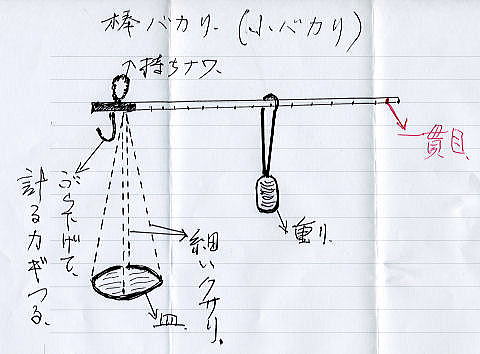 棒バカリ.(小バカリ)
持ちナワ.
一貫目
ぶらさげて、
計るカギつる.
細いクサリ.
重り.
皿